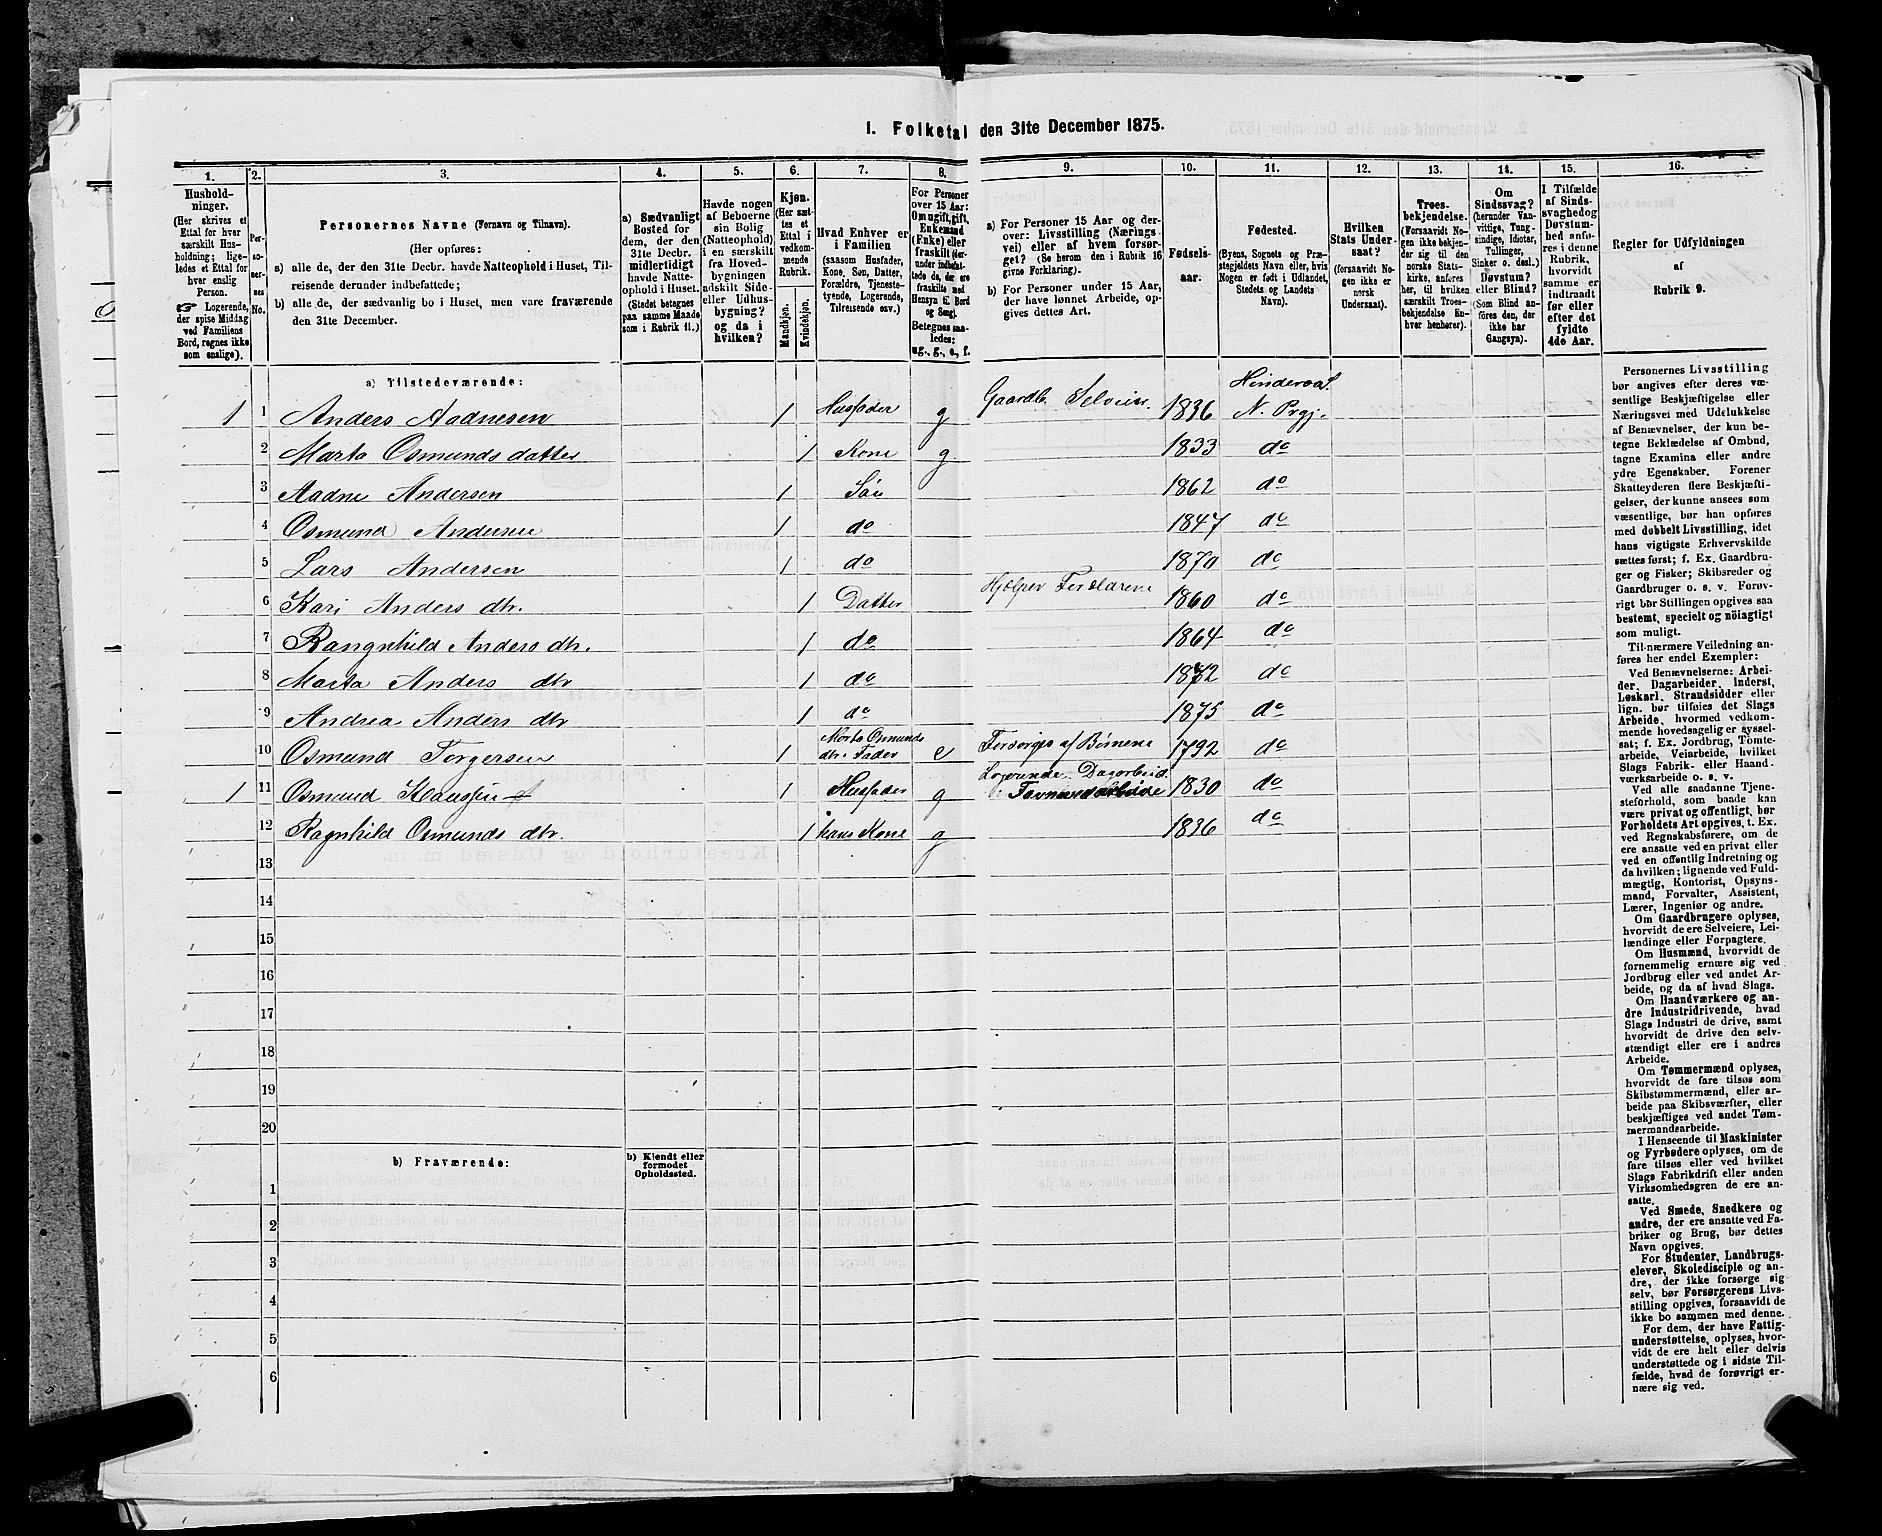 1. Folketal den 31te December 1875.
1. 2. 3. 4. 5. 6. 7. 8. 9. 10. 11. 12. 13. 14. 15. 16.
Hushold-
ninger.
(Her skrives et
Ettal for hver
særskilt Hus-
holdning; lige-
ledes et Ettal for
hver enslig
Person.
☞ Logerende,
der spise Middag
ved Familiens
Bord, regnes ikke
som enslige).
Per-
so-
ner-
nes
No.
Personernes Navne (Fornavn og Tilnavn).
(Her opføres:
a) alle de, der den 31te Decbr. havde Natteophold i Huset, Til-
reisende derunder indbefattede;
b) alle de, der sædvanlig bo i Huset, men vare fraværende
den 31te December.
a) Sædvanligt
Bosted for
dem, der den
31te Decbr.
midlertidigt
havde Natte-
ophold i Huset.
(Stedet betegnes
paa samme Maade
som i Rubrik 11.)
Havde nogen
af Beboerne
sin Bolig
(Natteophold)
i en særskilt
fra Hoved-
bygningen
adskilt Side-
eller Udhus-
bygning?
og da i
hvilken?
Kjøn.
(Her sæt-
tes et
Ettal i
vedkom-
mende
Rubrik.
Mandkjøn.
Kvindekjøn.
Hvad Enhver er
i Familien
(saasom Husfader,
Kone, Søn, Datter,
Forældre, Tjeneste-
tyende, Logerende,
Tilreisende osv.)
For Personer
over 15 Aar:
Om ugift, gift,
Enkemand
(Enke) eller
fraskilt (der-
under indbefat-
tede de, der ere
fraskilte med
Hensyn til Bord
og Seng).
Betegnes saa-
ledes:
ug., g., e., f.
a) For Personer 15 Aar og der-
over: Livsstilling (Nærings-
vei) eller af hvem forsør-
get? (Se herom den i Rubrik 16
givne Forklaring).
b) For Personer under 15 Aar,
der have lønnet Arbeide, op-
gives dettes Art.
Fødsels-
aar.
Fødested.
(Byens, Sognets og Præ-
stegjeldets Navn eller, hvis
Nogen er født i Udlandet,
Stedets og Landets
Navn).
Hvilken
Stats Under-
saat?
(forsaavidt No-
gen ikke er
norsk
Undersaat).
Troes-
bekjendelse.
(Forsaavidt No-
gen ikke bekjen-
der sig til den
norske Stats-
kirke, anføres
her, til hvilken
særskilt Troes-
bekjendelse En-
hver henhører).
Om
Sindssvag?
(herunder Van-
vittige, Tung-
sindige, Idioter,
Tullinger,
Sinker o. desl.)
Døvstum?
eller Blind?
(Som Blind an-
føres den, der
ikke har
Gangsyn).
I Tilfælde
af Sinds-
svaghed og
Døvstum-
hed anfø-
res i denne
Rubrik,
hvorvidt
samme er
indtraadt
før eller
efter det
fyldte
4de Aar.
Regler for Udfyldningen
af
Rubrik 9.
a) Tilstedeværende:
1 1 Anders Aadnesen 1 Husfader g Gaardb. Selveier. 1836 N. Prgj.
2 Marta Osmunds datter 1 Kone g 1833 do
3 Aadne Andersen 1 Søn 1862 do
4 Osmund Andersen 1 do 1847 do
5 Lars Andersen 1 do 1870 do
6 Kari Anders dtr. 1 Datter Hjælper Forældrene 1860 do
7 Rangnhild Anders dtr. 1 do 1864 do
8 Marta Anders dtr 1 do 1872 do
9 Andrea Anders dtr 1 do 1875 do
10 Osmund Torgersen 1 Marta Osmunds
dtr. Fader e Forsørges af Børnene 1792 do
1 11 Osmund 1 Husfader g 1830 do
12 Ragnhild Osmunds dtr. 1 hans Kone g 1836 do
13
14
15
16
17
18
19
20
b) Fraværende:
b) Kjendt eller
formodet
Opholdssted.
1
2
3
4
5
6
Personernes Livsstilling
bør angives efter deres væ-
sentlige Beskjæftigelse eller
Næringsvei med Udelukkelse
af Benævnelser, der kun be-
tegne Beklædelse af Ombud,
tagne Examina eller andre
ydre Egenskaber. Forener
Skatteyderen flere Beskjæfti-
gelser, der kunne ansees som
væsentlige, bør han opføres
med dobbelt Livsstilling, idet
hans vigtigste Erhvervskilde
sættes først; f. Ex. Gaardbru-
ger og Fisker; Skibsreder og
Gaardbruger o. s. v. Forøv-
rigt bør Stillingen opgives saa
bestemt, specielt og nöiagtigt
som muligt.
Til nærmere Veiledning an-
føres her endel Exempler:
Ved Benævnelserne: Arbei-
der, Dagarbeider, Inderst,
Løskarl, Strandsidder eller
lign. bør tilføies det Slags
Arbeide, hvormed vedkom-
mende hovedsagelig er sysel-
sat; f. Ex. Jordbrug, Tømte-
arbeide, Veiarbeide, hvilket
Slags Fabrik- eller Haand-
værksarbeide o. s. v.
Ved alle saadanne Tjene-
steforhold, som baade kan
være privat og offentligt, bør
Forholdets Art opgives, t. Ex.
ved Regnskabsførere, om de
ere ansatte ved en privat eller
ved en offentlig Indretning og
da hvilken; lignende ved Fuld-
mægtig, Kontorist, Opsyns-
mand, Forvalter, Assistent,
Lærer, Ingeniør og andre.
Om Gaardbrugere oplyses,
hvorvidt de ere Selveiere, Lei-
lændinge eller Forpagtere.
Om Husmænd, hvorvidt de
fornemmelig ernære sig ved
Jordbrug eller ved andet Ar-
beide, og da af hvad Slags.
Om Haandværkere og an-
dre Industridrivende, hvad
Slags Industri de drive, samt
hvorvidt de drive den selv-
stændigt eller ere i andres
Arbeide.
Om Tømmermænd oplyses,
hvorvidt de fare tilsøs som
Skibstømmermænd, eller ar-
beide paa Skibsværfter, eller
beskjæftiges ved andet Tøm-
mermandsarbeide.
I Henseende til Maskinister
og Fyrbødere oplyses, om de
fare tilsøs eller ved hvilket
Slags Fabrikdrift eller anden
Virksomhedsgren de ere an-
satte.
Ved Smede, Snedkere og
andre, der ere ansatte ved Fa-
briker og Brug, bør dettes
Navn opgives.
For Studenter, Landbrugs-
elever, Skoledisciple og an-
dre, der ikke forsørge sig
selv, bør Forsørgerens Livs-
stilling opgives, forsaavidt de
ikke bo sammen med denne.
For dem, der have Fattig-
understøttelse, oplyses, hvor-
vidt de ere helt eller delvis
understøttede og i sidste Til-
fælde, hvad de forøvrigt er-
nære sig ved.